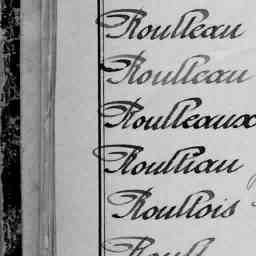 Roulleau
Roulleau
Roulleaux
Roulliau
Roullois
Roull